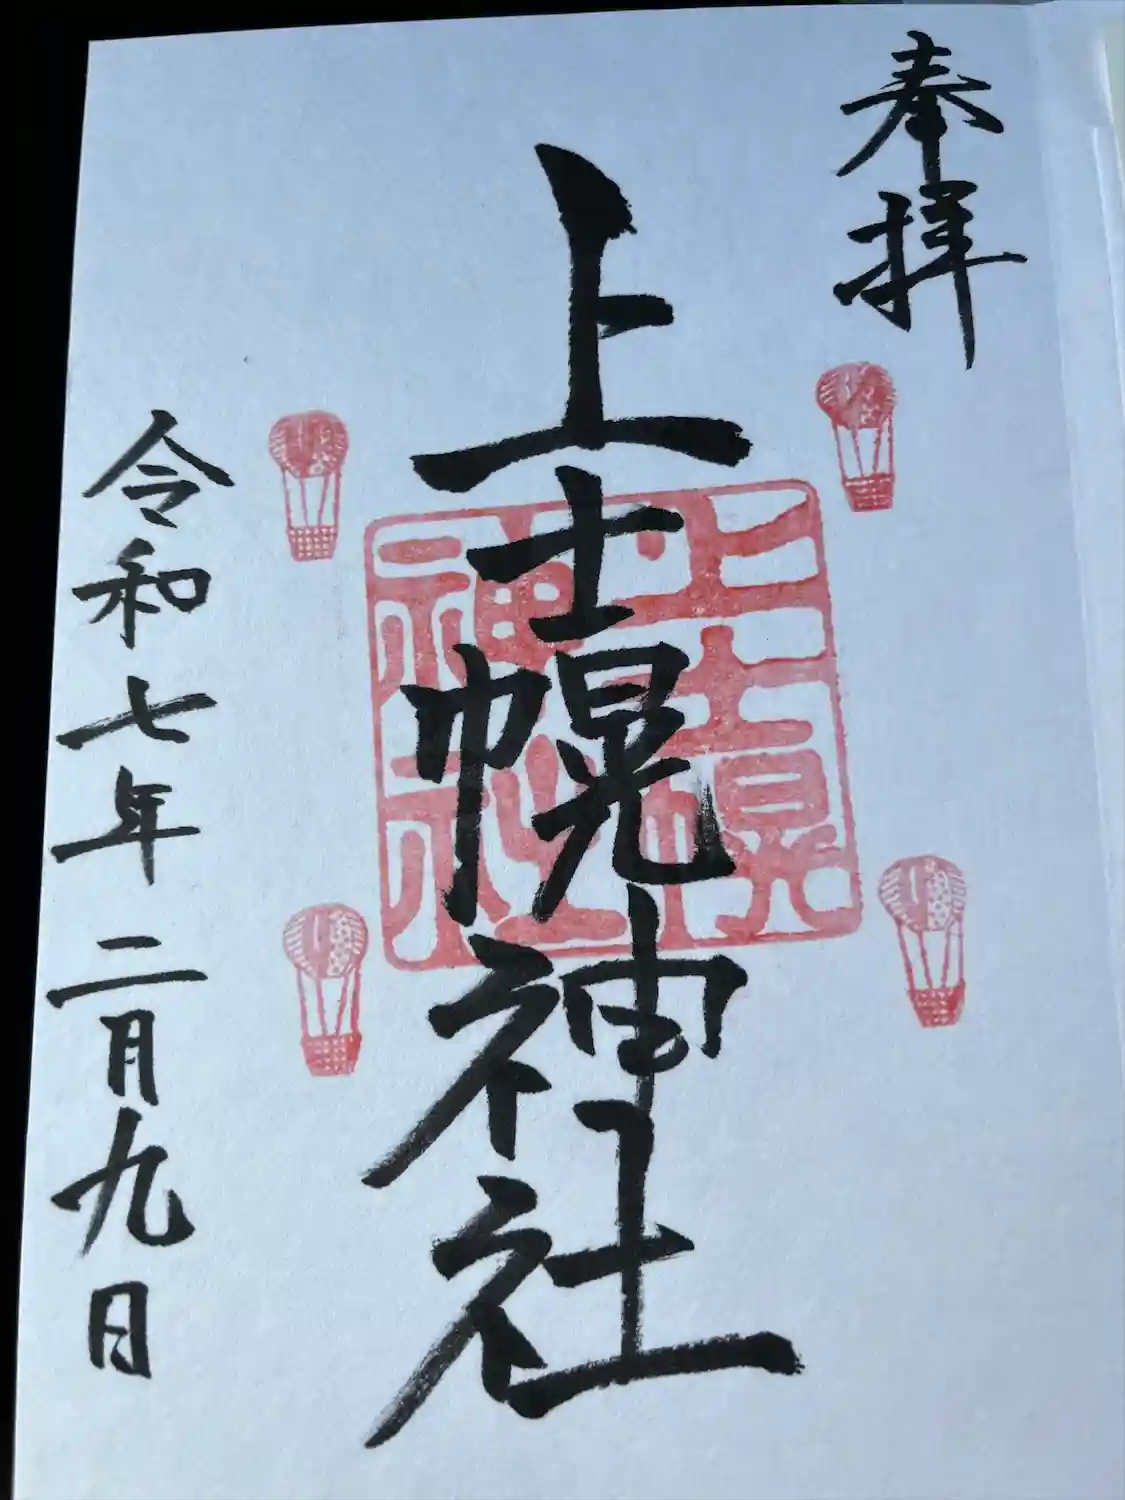 奉拝
上士幌神社
上士幌
神社
令和七年二月九日